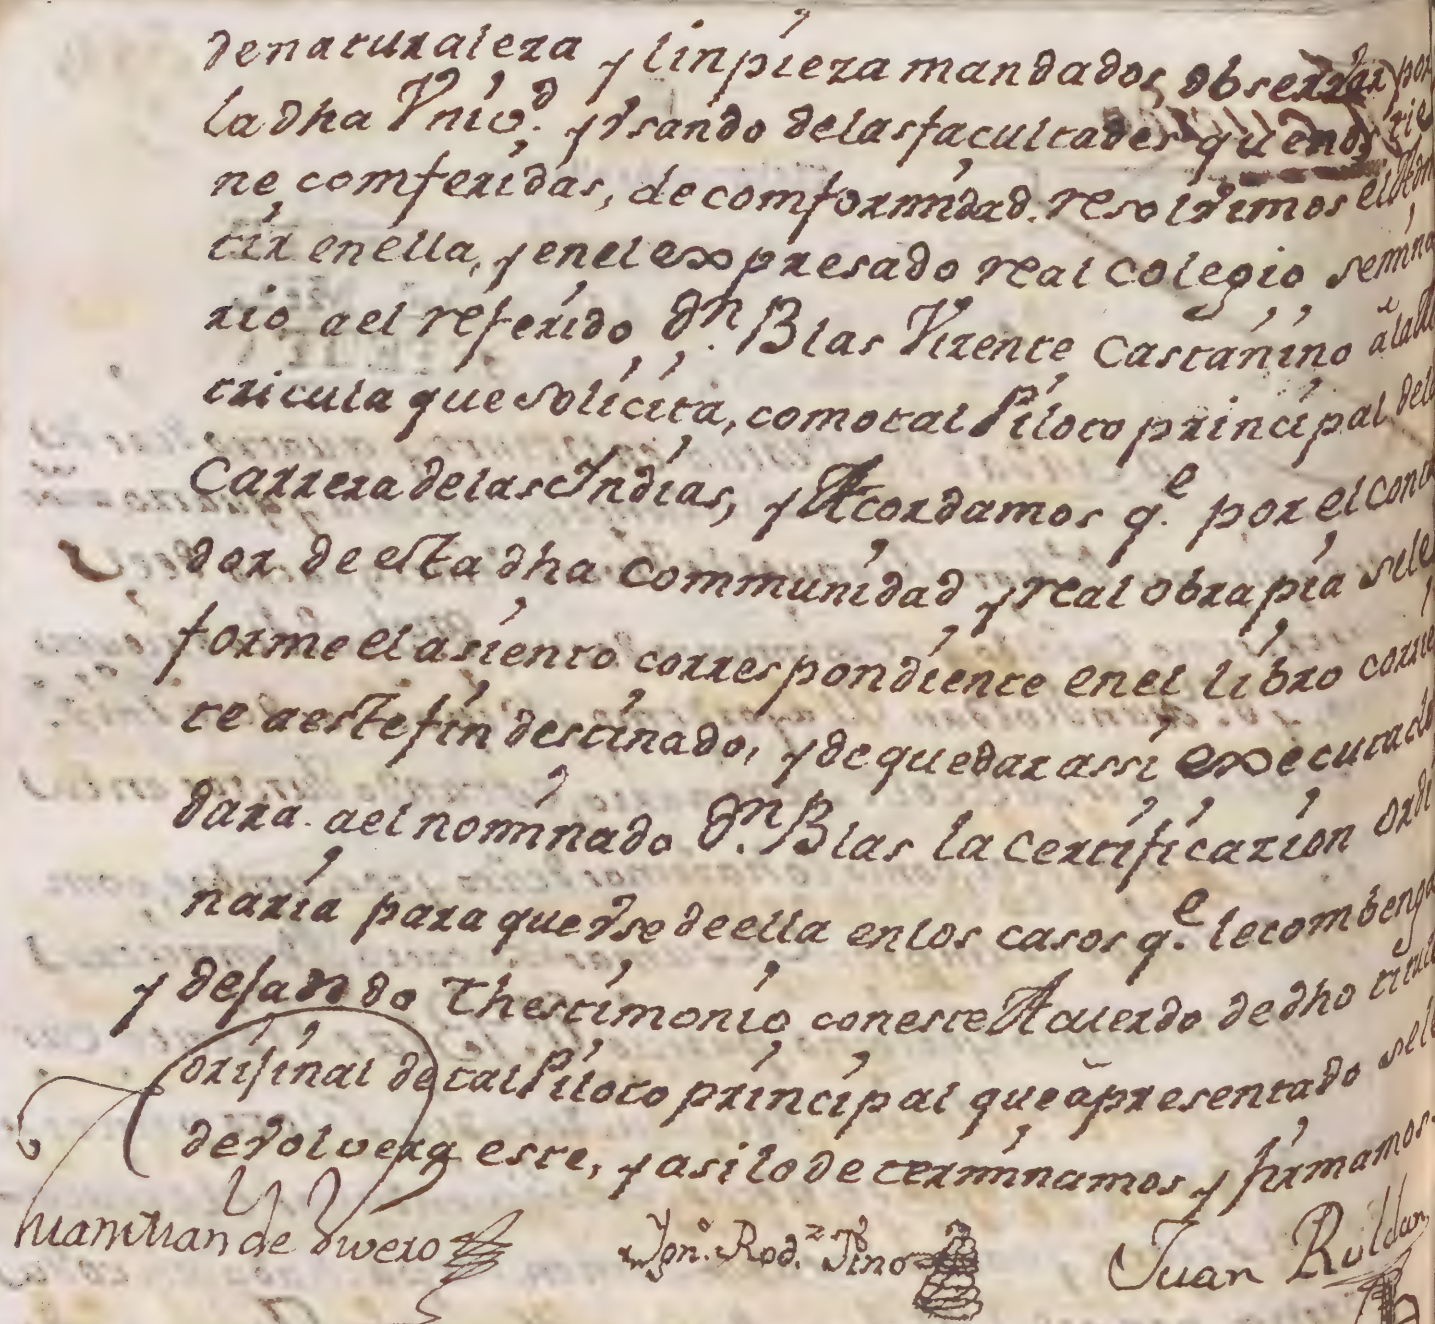 de naturaleza y linpieza mandados observar por
la dha Vniv.d y vsando de las facultades que nos tie
ne comferidas, de comformidad resolvimos el Adm
tir en ella, y en el expresado real colegio semina
rio ael referido Dn. Blas Vizente Castanino â la Ma
tricula que solicita, como tal Piloto principal de la
Carrera de las Indias, y Acordamos q.e por el Conta
dor de esta dha communidad y real obra pia se le
forme el asiento correspondiente en el libro corrien
te a este fin destinado, y de quedar assi executado
dara ael nominado Dn. Blas la certificazion ordi
naria para que vse de ella en los casos q.e le combenga
y dejando thestimonio con este Acuerdo de dho titulo
orijinal de tal Piloto principal que â presentado se le
devolvera este, y asi lo determinamos y firmamos.
Rod.z Juan Roldan